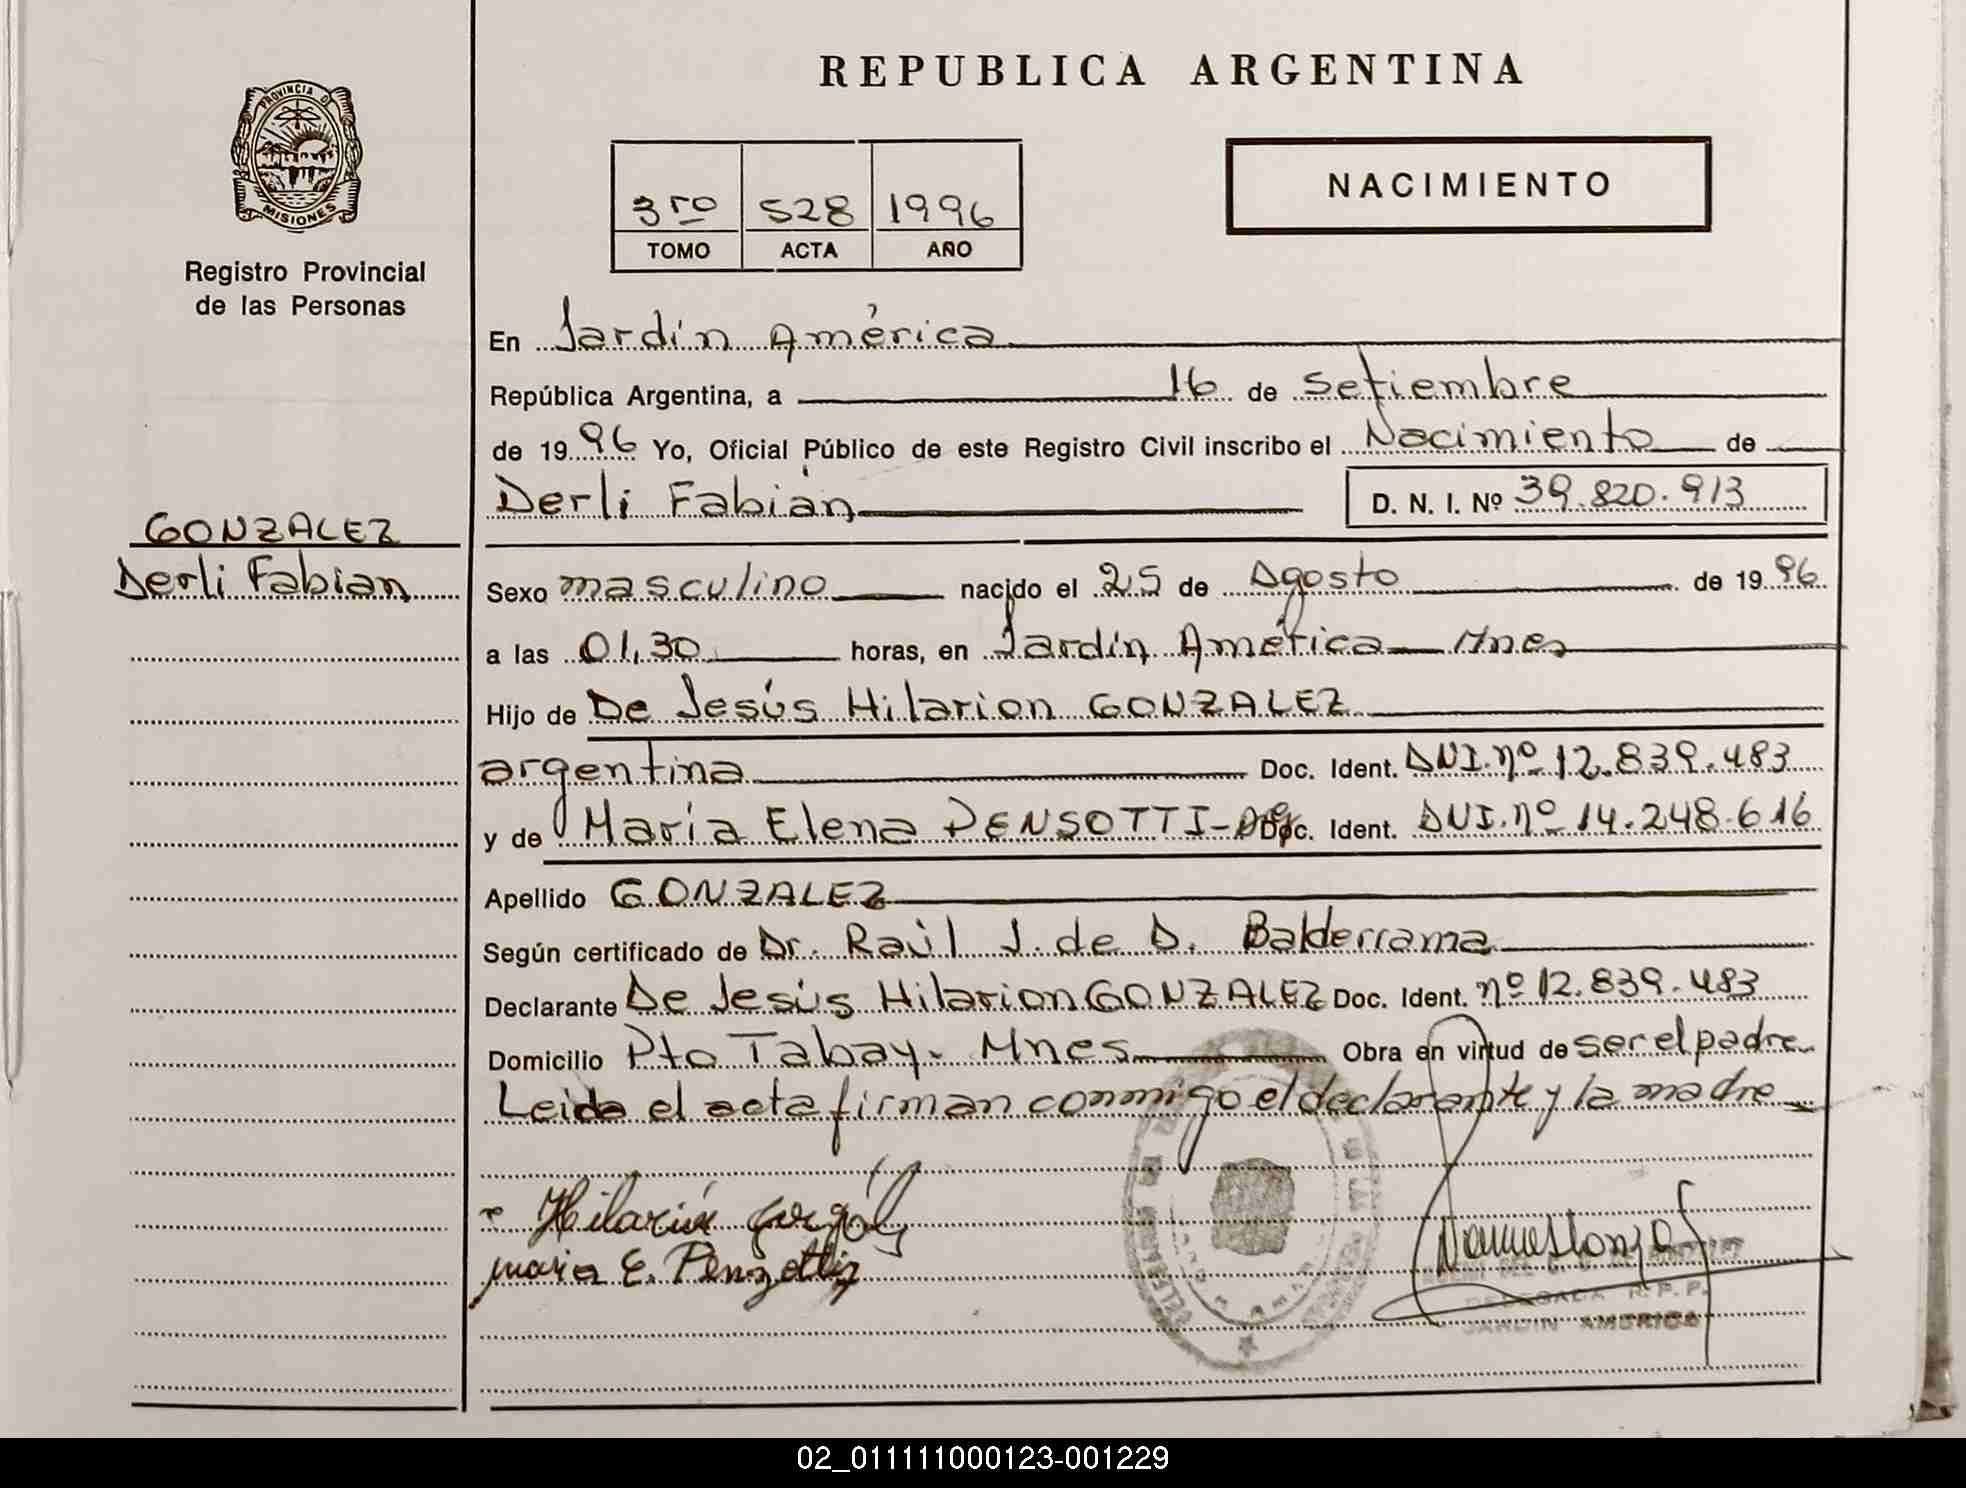 REPUBLICA ARGENTINA
PROVINCIA DE
MISIONES
Registro Provincial
de las Personas
3ro 528 1996
TOMO ACTA AÑO
NACIMIENTO
En Jardín América
República Argentina, a 16 de setiembre
de 1996 Yo, Oficial Público de este Registro Civil inscribo el Nacimiento de
Derli Fabián D. N. I. Nº 39.820.913
GONZALEZ
Derli Fabian
Sexo masculino nacido el 25 de Agosto de 1996
a las 01,30 horas, en Jardín América Mnes
Hijo de De Jesús Hilarion GONZALEZ
argentina Doc. Ident. DNI.nº 12.839.483
y de María Elena PENSOTTI- Doc. Ident. DNI.nº 14.248.616
Apellido GONZALEZ
Según certificado de Dr. Raúl J. de D. Balderrama
Declarante De Jesús Hilarion GONZALEZ Doc. Ident. nº 12.839.483
Domicilio Pto Tabay. Mnes Obra en virtud de ser el padre
Leida el acta firman conmigo el declarante y la madre
Hilarión
maria E. Penzottiz
DELEGADA R.P.P.
JARDIN AMERICA
02_011111000123-001229